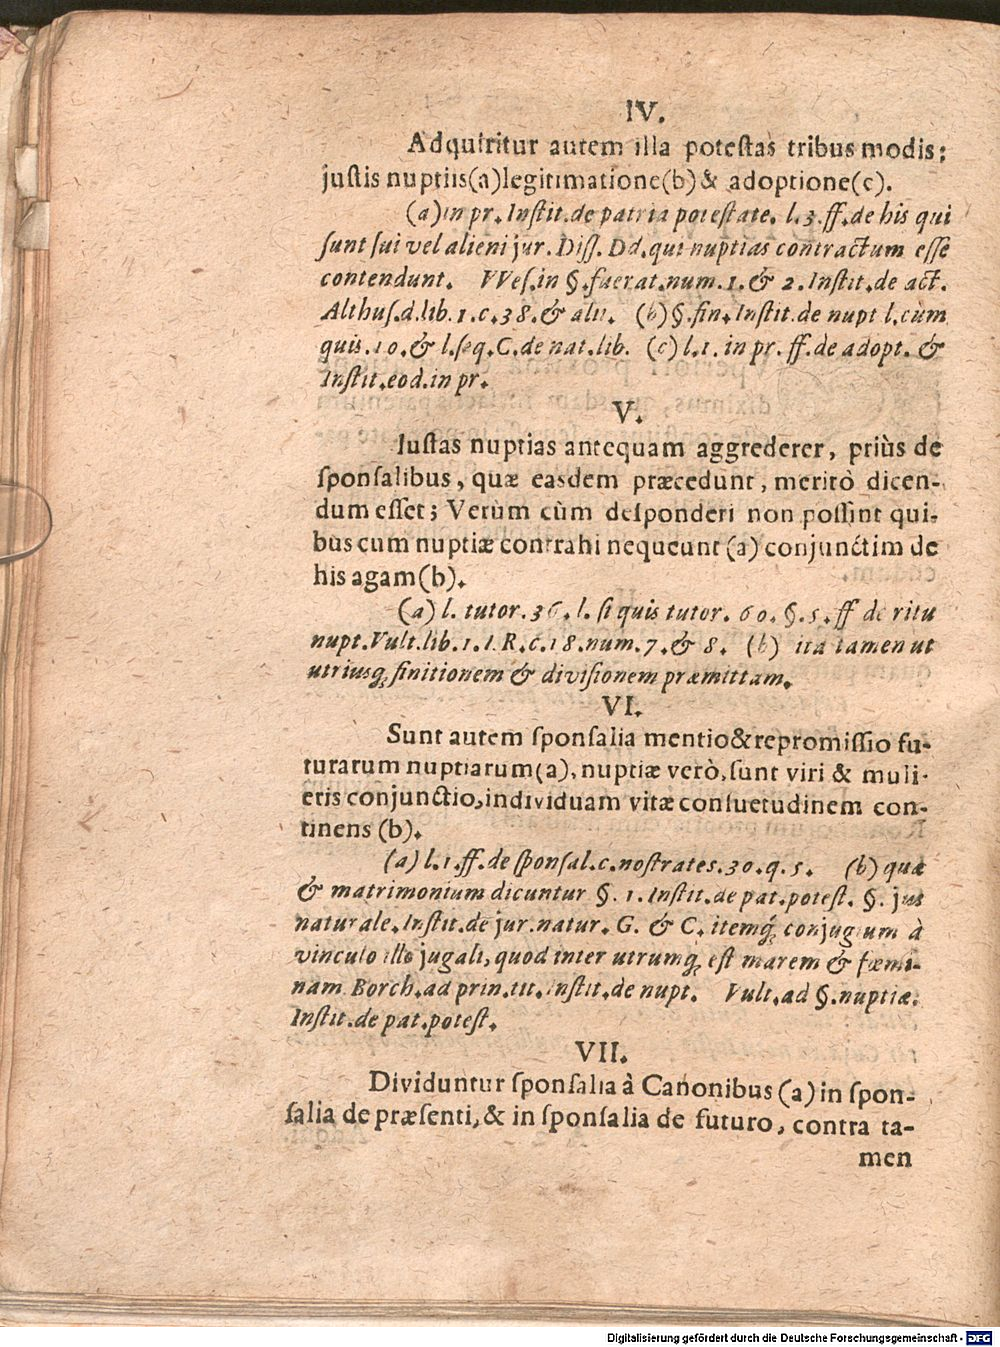 IV.
Adquiritur autem illa poteſtas tribus modis;
juſtis nuptiis(a)legitimatione(b)& adoptione(c).
(a)in pr. Inſtit. de patria poteſtate. l. 3. ff. de his qui
ſunt ſui vel alieni jur. Diſſ. Dd. qui nuptias contractum eſſe
contendunt. VVeſ. in §. fuerat. num. 1. & 2. Inſtit. de act.
Althuſ. d. lib. 1. c. 38. & alii. (b) §. fin. Inſtit. de nupt l. cùm
quis. 10. & l. ſeq. C. de nat. lib. (c) l. 1. in pr. ff. de adopt. &
Inſtit. eod. in pr.
V.
Iuſtas nuptias antequam aggrederer, priùs de
ſponſalibus, quæ easdem præcedunt, meritò dicen-
dum eſſet; Verùm cùm deſponderi non poſſint qui-
bus cum nuptiæ contrahi nequeunt (a) conjunctim de
his agam (b).
(a) l. tutor. 36. l. ſi quis tutor. 60. §. 5. ff de ritu
nupt. Vult. lib. 1. I. R. c. 18. num. 7. & 8. (b) ita tamen ut
utriusq; finitionem & diviſionem præmittam.
VI.
Sunt autem ſponſalia mentio & repromiſſio fu-
turarum nuptiarum (a), nuptiæ verò, ſunt viri & muli-
eris conjunctio, individuam vitæ conſuetudinem con-
tinens (b).
(a) l. 1. ff. de ſponſal. c. noſtrates. 30. q. 5. (b) quæ
& matrimonium dicuntur §. 1. Inſtit. de pat. poteſt. §. jus
naturale. Inſtit. de jur. natur. G. & C. itemq; conjugium à
vinculo illo jugali, quod inter utrumq; eſt marem & fœmi-
nam Borch. ad prin. tit. Inſtit. de nupt. Vult. ad §. nuptiæ.
Inſtit. de pat. poteſt.
VII.
Dividuntur ſponſalia à Canonibus (a) in ſpon-
ſalia de præſenti, & in ſponſalia de futuro, contra ta-
men
Digitalisierung gefördert durch die Deutsche Forschungsgemeinschaft - DFG